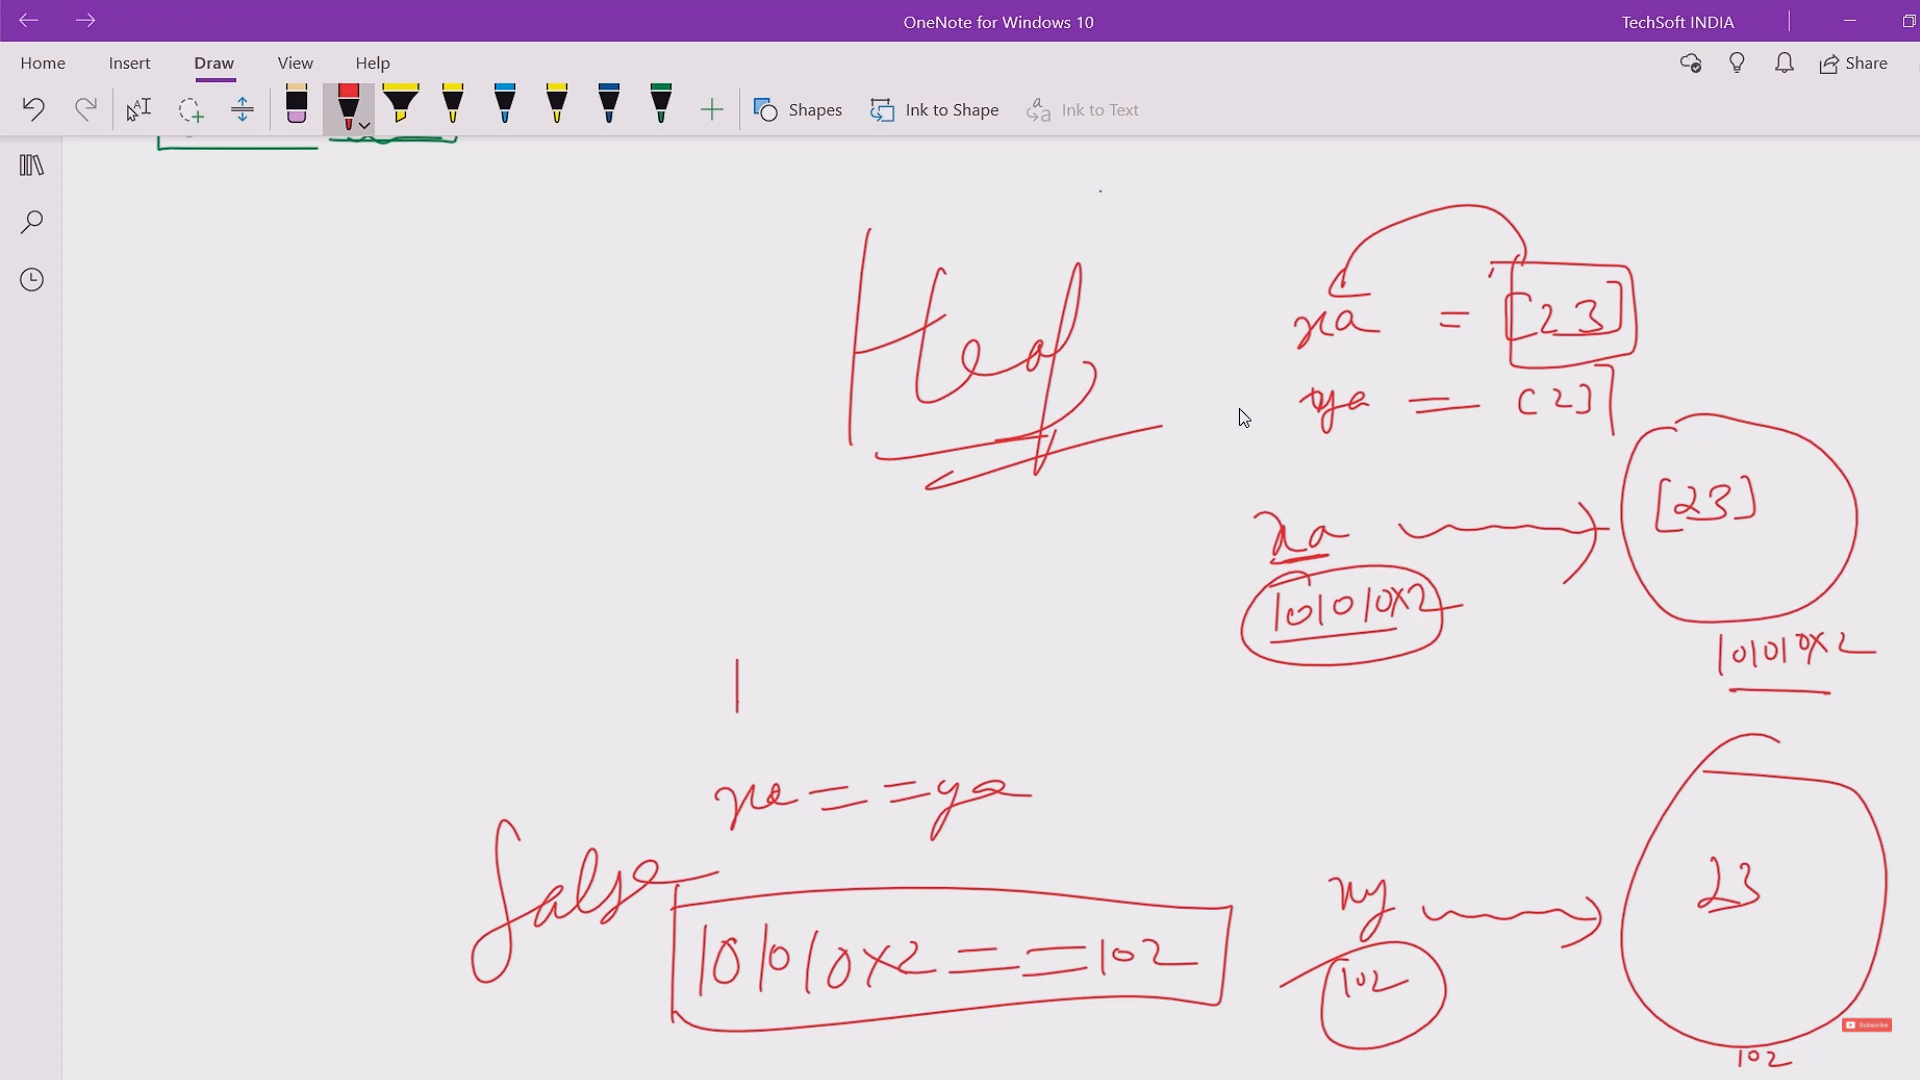 OneNote for Windows 10
TechSoft INDIA
Home Insert Draw View Help
Share
Shapes Ink to Shape Ink to Text
Heap
xa = [23]
ya = [23]
xa
[23]
101010x2
101010x2
xa==ya
false
101010x2==102
xy
23
102
102
Subscribe